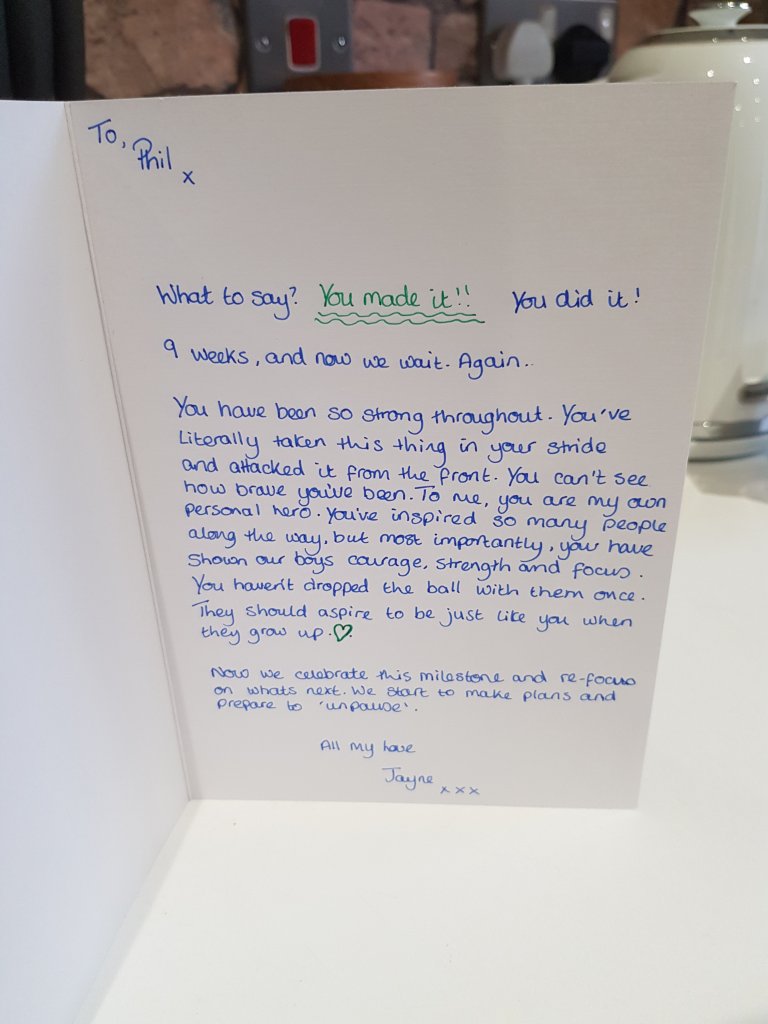 To,
Phil
x
What to say? You made it!! You did it!
9 weeks, and now we wait. Again..
You have been so strong throughout. You've
Literally taken this thing in your stride
and attacked it from the front. You can't see
how brave you've been. To me, you are my own
personal hero. You've inspired so many people
along the way, but most importantly, you have
shown our boys courage, strength and focus.
You haven't dropped the ball with them once.
They should aspire to be just like you when
they grow up. ♡
Now we celebrate this milestone and re-focus
on whats next. We start to make plans and
prepare to 'unpause'.
All my love
Jayne xxx